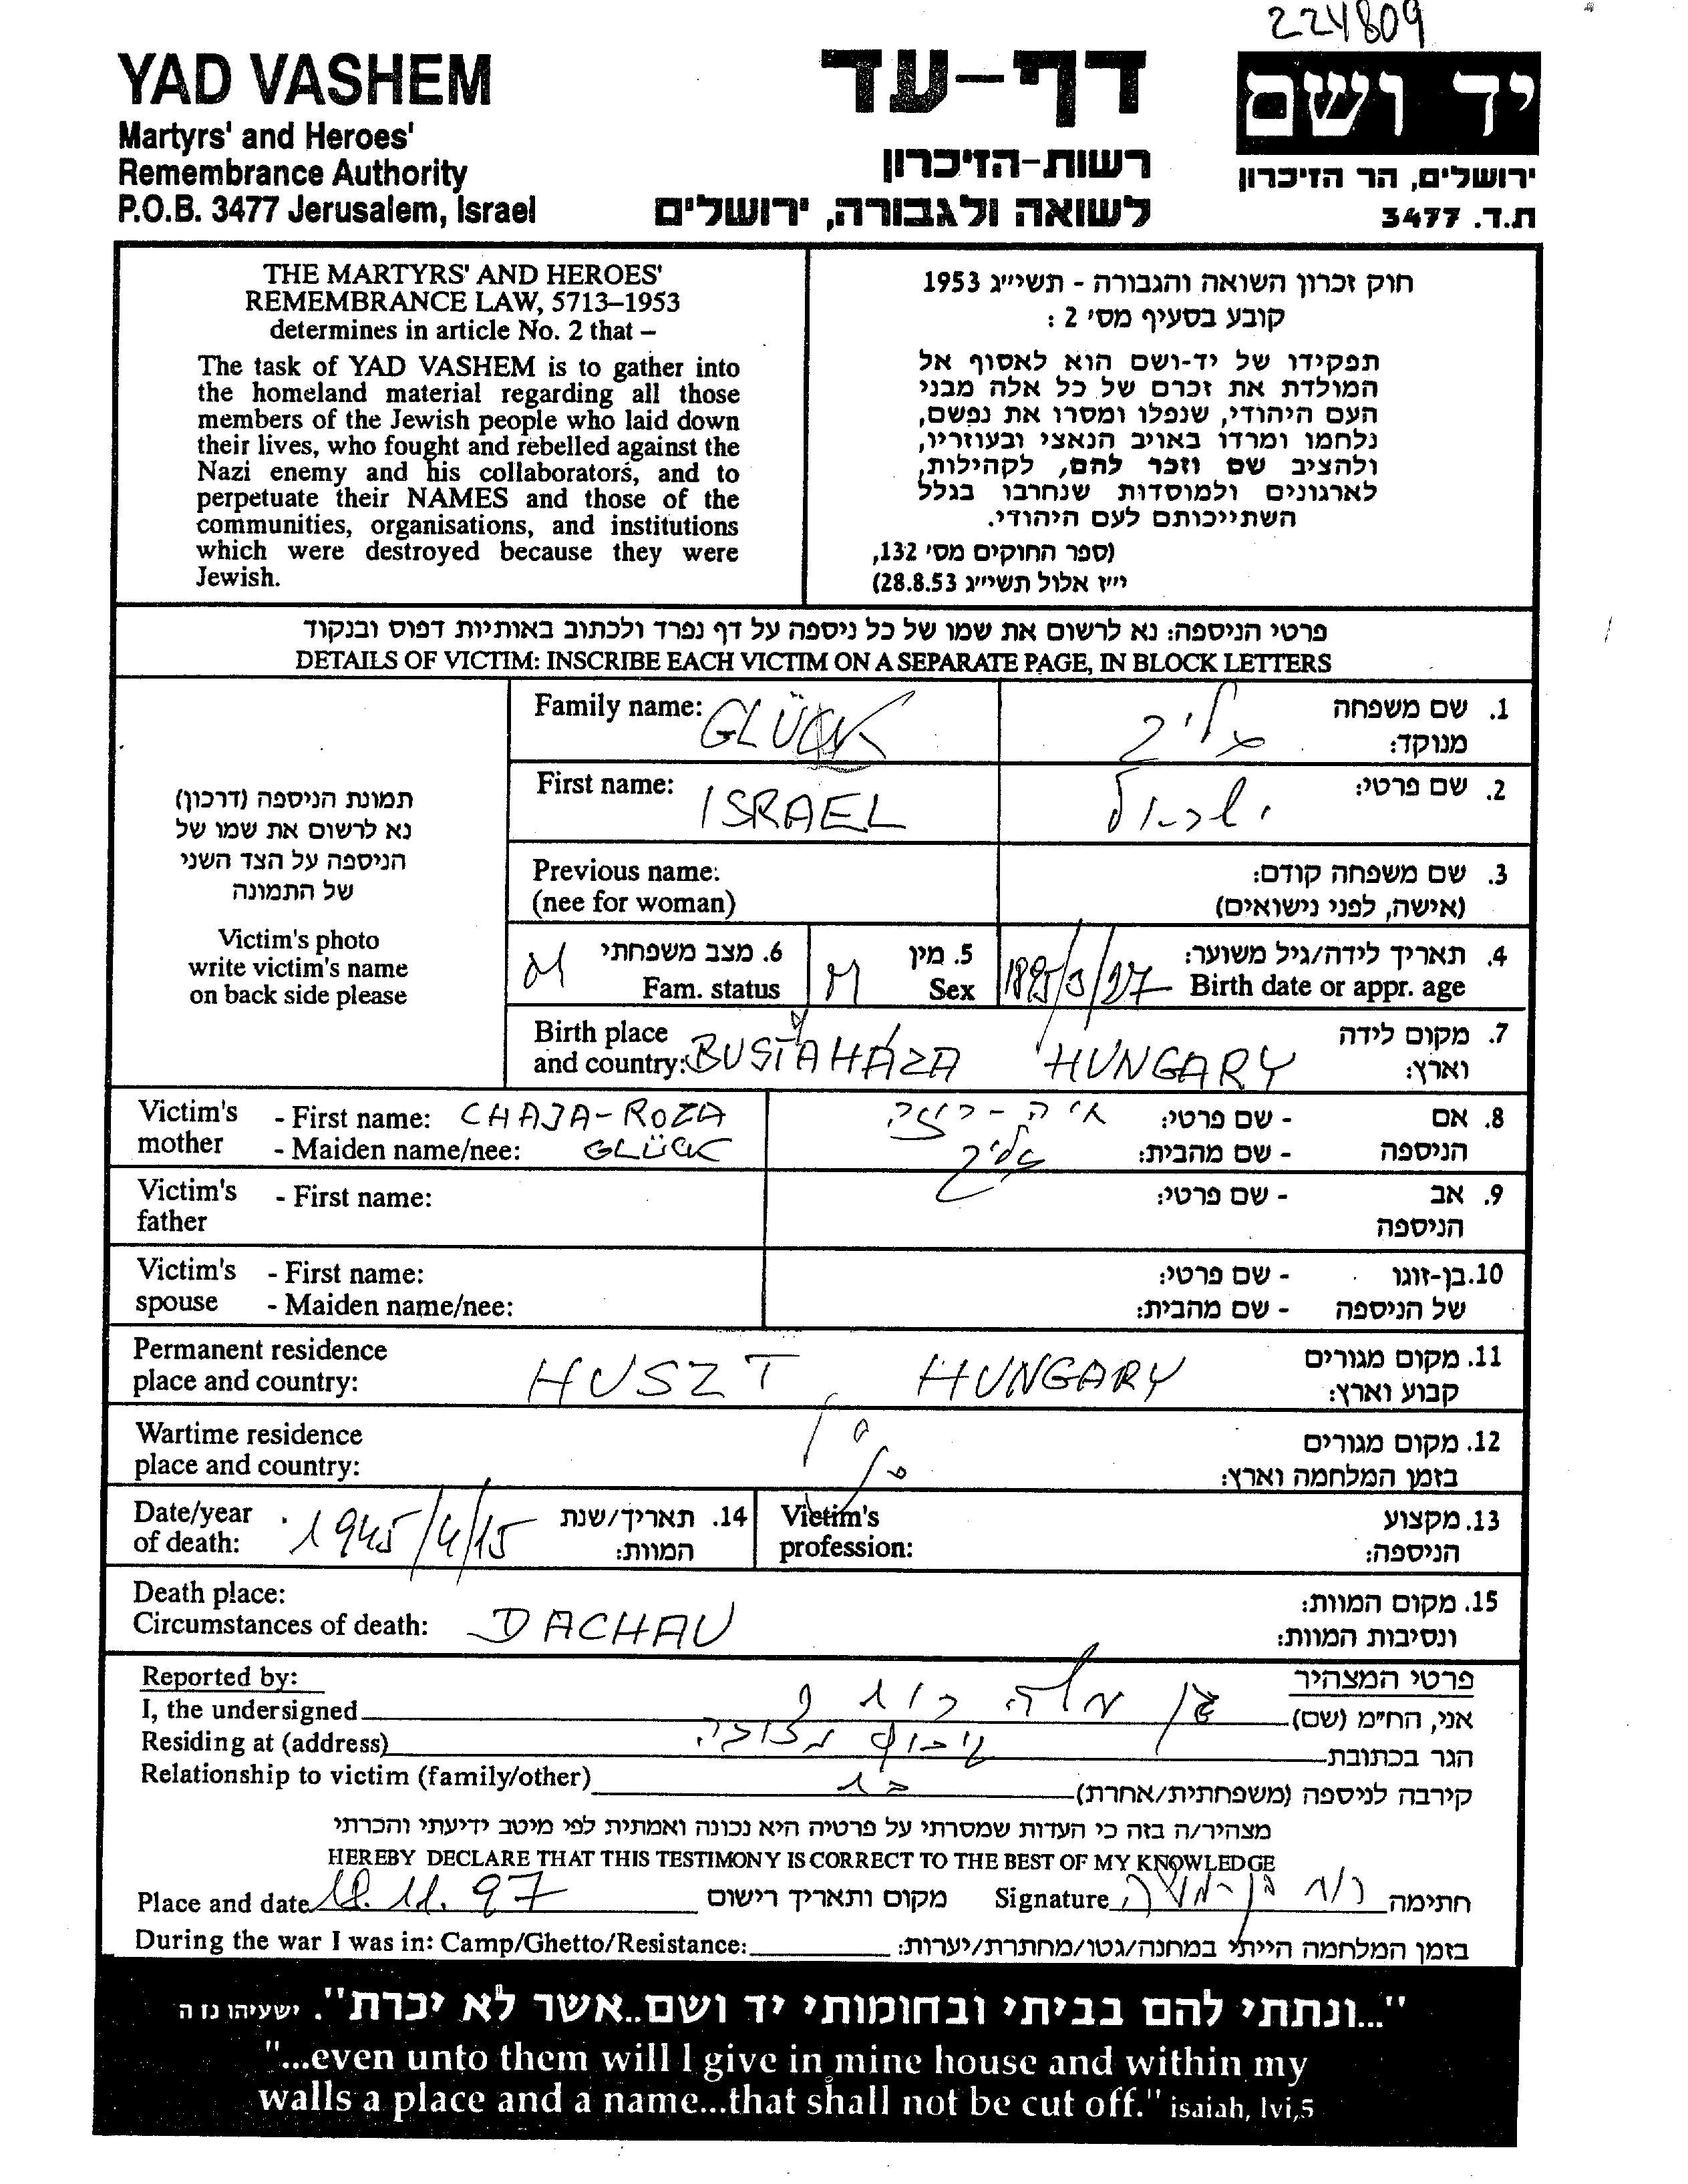 224809
YAD VASHEM
Martyrs' and Heroes'
Remembrance Authority
P.O.B. 3477 Jerusalem, Israel
דף-עד
רשות-הזיכרון
לשואה ולגבורה, ירושלים
יד ושם
ירושלים, הר הזיכרון
ת.ד. 3477
THE MARTYRS' AND HEROES'
REMEMBRANCE LAW, 5713–1953
determines in article No. 2 that –
The task of YAD VASHEM is to gather into
the homeland material regarding all those
members of the Jewish people who laid down
their lives, who fought and rebelled against the
Nazi enemy and his collaborators, and to
perpetuate their NAMES and those of the
communities, organisations, and institutions
which were destroyed because they were
Jewish.
חוק זכרון השואה והגבורה - תשי״ג 1953
קובע בסעיף מס׳ 2 :
תפקידו של יד-ושם הוא לאסוף אל
המולדת את זכרם של כל אלה מבני
העם היהודי, שנפלו ומסרו את נפשם,
נלחמו ומרדו באויב הנאצי ובעוזריו,
ולהציב שם וזכר להם, לקהילות,
לארגונים ולמוסדות שנחרבו בגלל
השתייכותם לעם היהודי.
(ספר החוקים מס׳ 132,
י״ז אלול תשי״ג 28.8.53)
פרטי הניספה: נא לרשום את שמו של כל ניספה על דף נפרד ולכתוב באותיות דפוס ובנקוד
DETAILS OF VICTIM: INSCRIBE EACH VICTIM ON A SEPARATE PAGE, IN BLOCK LETTERS
תמונת הניספה (דרכון)
נא לרשום את שמו של
הניספה על הצד השני
של התמונה
Victim's photo
write victim's name
on back side please
Family name: GLÜCK
1. שם משפחה
מנוקד: גליק
First name: ISRAEL
2. שם פרטי: ישראל
Previous name:
(nee for woman)
3. שם משפחה קודם:
(אישה, לפני נישואים)
4. תאריך לידה/גיל משוער:
Birth date or appr. age 1895/3/27
5. מין
Sex M
6. מצב משפחתי
Fam. status M
Birth place
and country: BUSTAHÁZA HUNGARY
7. מקום לידה
וארץ:
Victim's mother - First name: CHAJA-ROZA
- Maiden name/nee: GLÜCK
8. אם הניספה - שם פרטי: חיה-רוזה
- שם מהבית: גליק
Victim's father - First name:
9. אב הניספה - שם פרטי:
Victim's spouse - First name:
- Maiden name/nee:
10. בן-זוגו של הניספה - שם פרטי:
- שם מהבית:
Permanent residence
place and country: HUSZT, HUNGARY
11. מקום מגורים
קבוע וארץ:
Wartime residence
place and country:
12. מקום מגורים
בזמן המלחמה וארץ:
Date/year
of death: 1945/4/15
14. תאריך/שנת
המוות:
Victim's
profession:
13. מקצוע
הניספה:
Death place:
Circumstances of death: DACHAU
15. מקום המוות:
ונסיבות המוות:
Reported by:
פרטי המצהיר
I, the undersigned
אני, הח״מ (שם) בן משה רות
Residing at (address)
הגר בכתובת
Relationship to victim (family/other)
קירבה לניספה (משפחתית/אחרת) בת
מצהיר/ה בזה כי העדות שמסרתי על פרטיה היא נכונה ואמתית לפי מיטב ידיעתי והכרתי
HEREBY DECLARE THAT THIS TESTIMONY IS CORRECT TO THE BEST OF MY KNOWLEDGE
Place and date 18.11.97 מקום ותאריך רישום
Signature רות בן-משה חתימה
During the war I was in: Camp/Ghetto/Resistance:
בזמן המלחמה הייתי במחנה/גטו/מחתרת/יערות:
"...ונתתי להם בביתי ובחומותי יד ושם..אשר לא יכרת". ישעיהו נז ה
"...even unto them will I give in mine house and within my
walls a place and a name...that shall not be cut off." isaiah, lvi,5